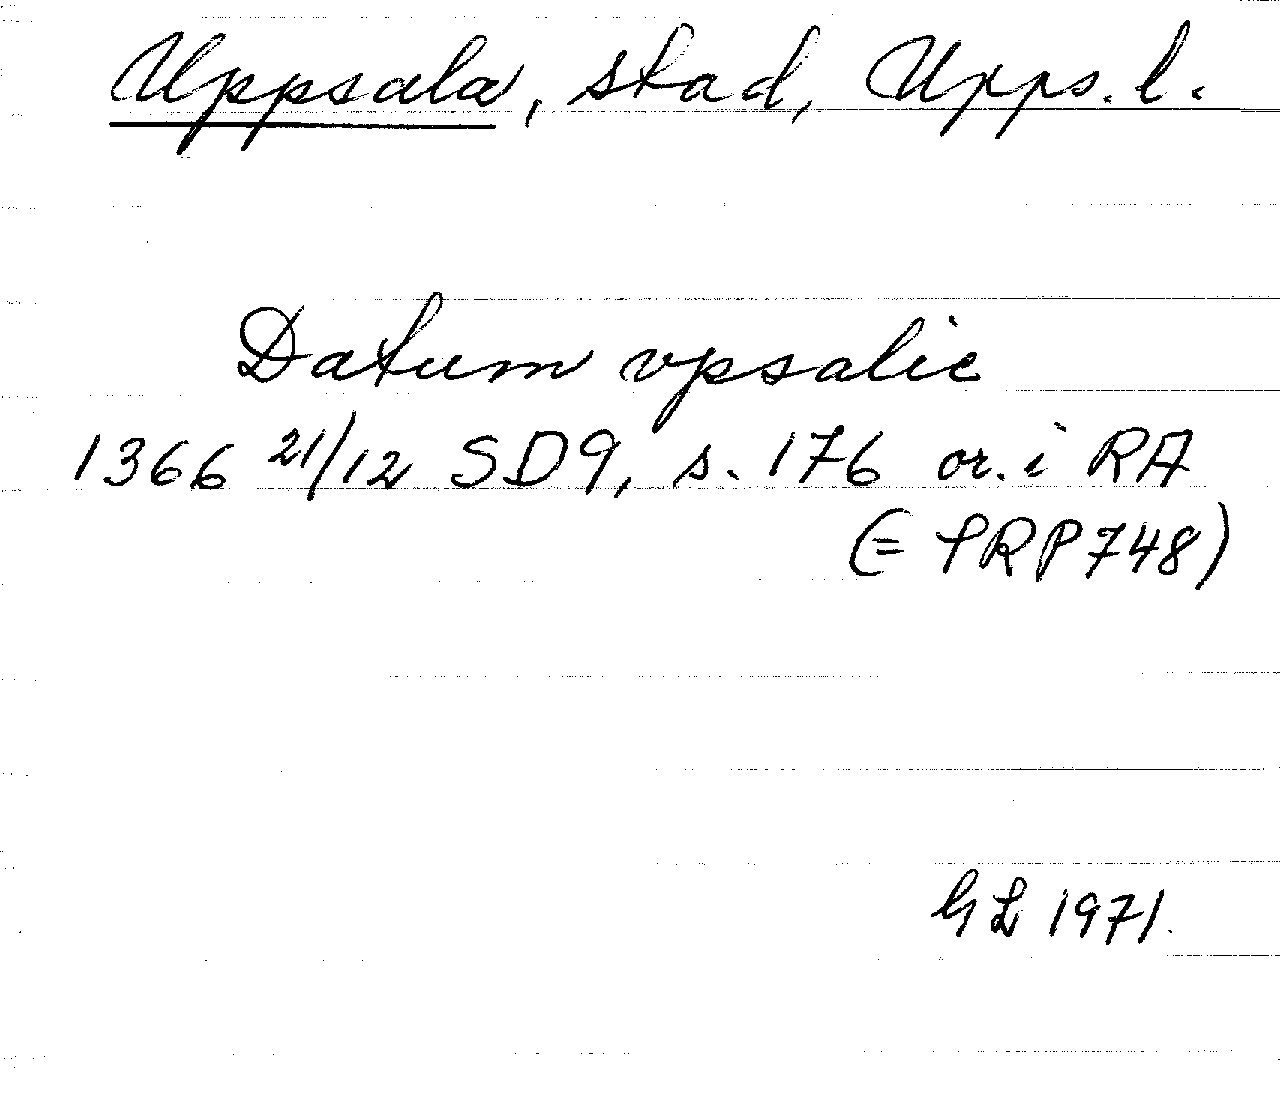 Uppsala, stad, Upps. l.
Datum vpsalie
1366 21/12 SD9, s. 176 or. i RA
(= SRP 748)
GL 1971.